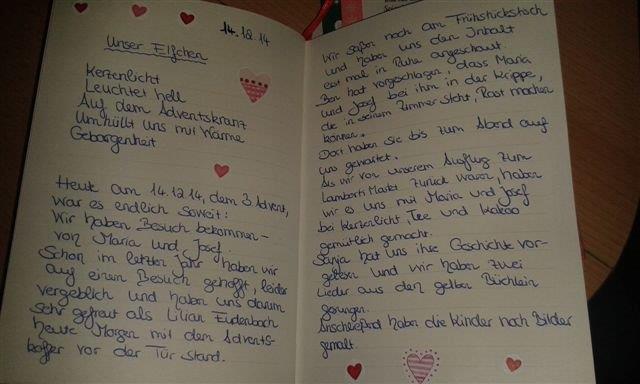 14.12.14
Unser Elfchen
Kerzenlicht
Leuchtet hell
Auf dem Adventskranz
Umhüllt uns mit Wärme
Geborgenheit
Heute am 14.12.14, dem 3. Advent,
war es endlich soweit:
Wir haben Besuch bekommen -
von Maria und Josef.
Schon im letzten Jahr haben wir
auf einen Besuch gehofft, leider
vergeblich und haben uns darum
sehr gefreut als Lilian Eudenbach
heute Morgen mit dem Advents-
koffer vor der Tür stand.
Wir saßen noch am Frühstückstisch
und haben uns den Inhalt
erst mal in Ruhe angeschaut.
Ben hat vorgeschlagen, dass Maria
und Josef bei ihm in der Krippe,
die in seinem Zimmer steht, Rast machen
können.
Dort haben sie bis zum Abend auf
uns gewartet.
Als wir von unserem Ausflug zum
Lamberti Markt zurück waren, haben
wir es uns mit Maria und Josef
bei Kerzenlicht Tee und Kakao
gemütlich gemacht.
Sanja hat uns ihre Geschichte vor-
gelesen und wir haben zwei
Lieder aus den gelben Büchlein
gesungen.
Anschließend haben die Kinder noch Bilder
gemalt.